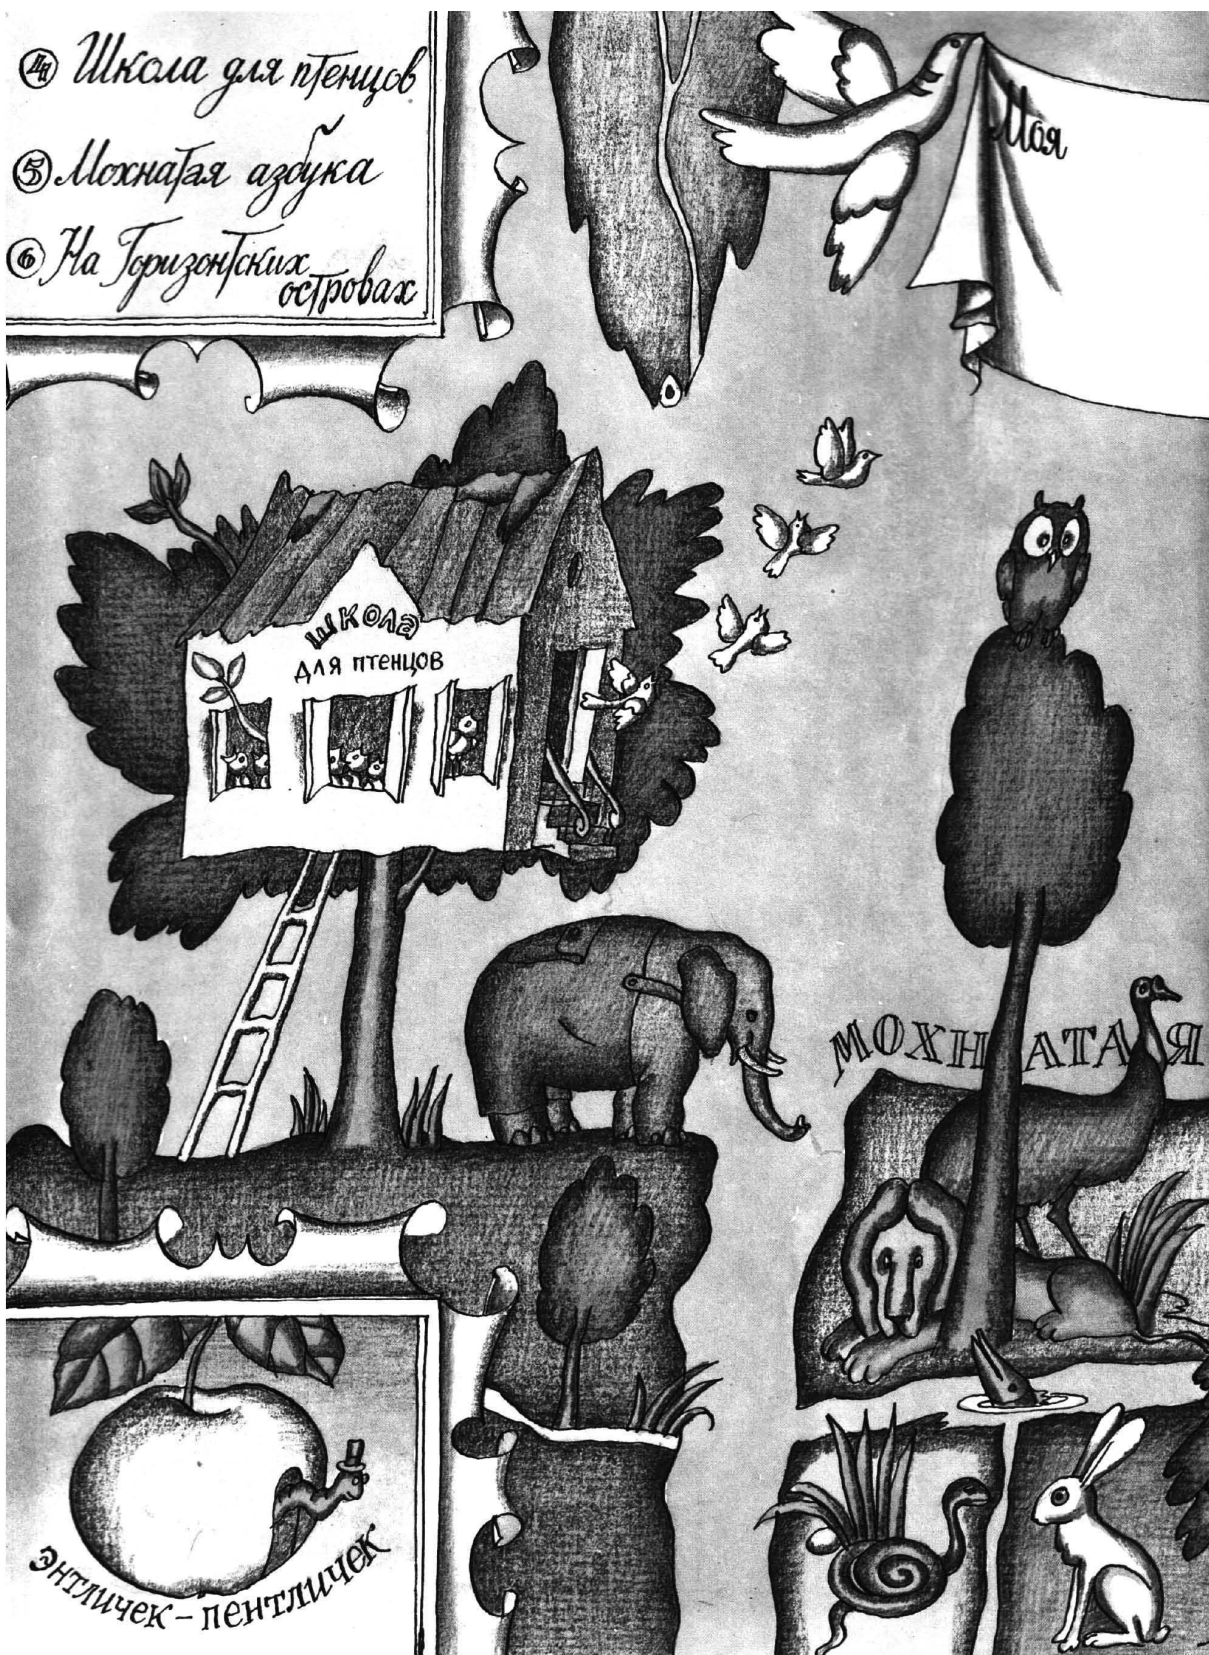 4 Школа для птенцов
5 Мохнатая азбука
6 На Горизонтских
островах
Моя
ШКОЛА
ДЛЯ ПТЕНЦОВ
МОХНАТАЯ
ЭНТЛИЧЕК-ПЕНТЛИЧЕК